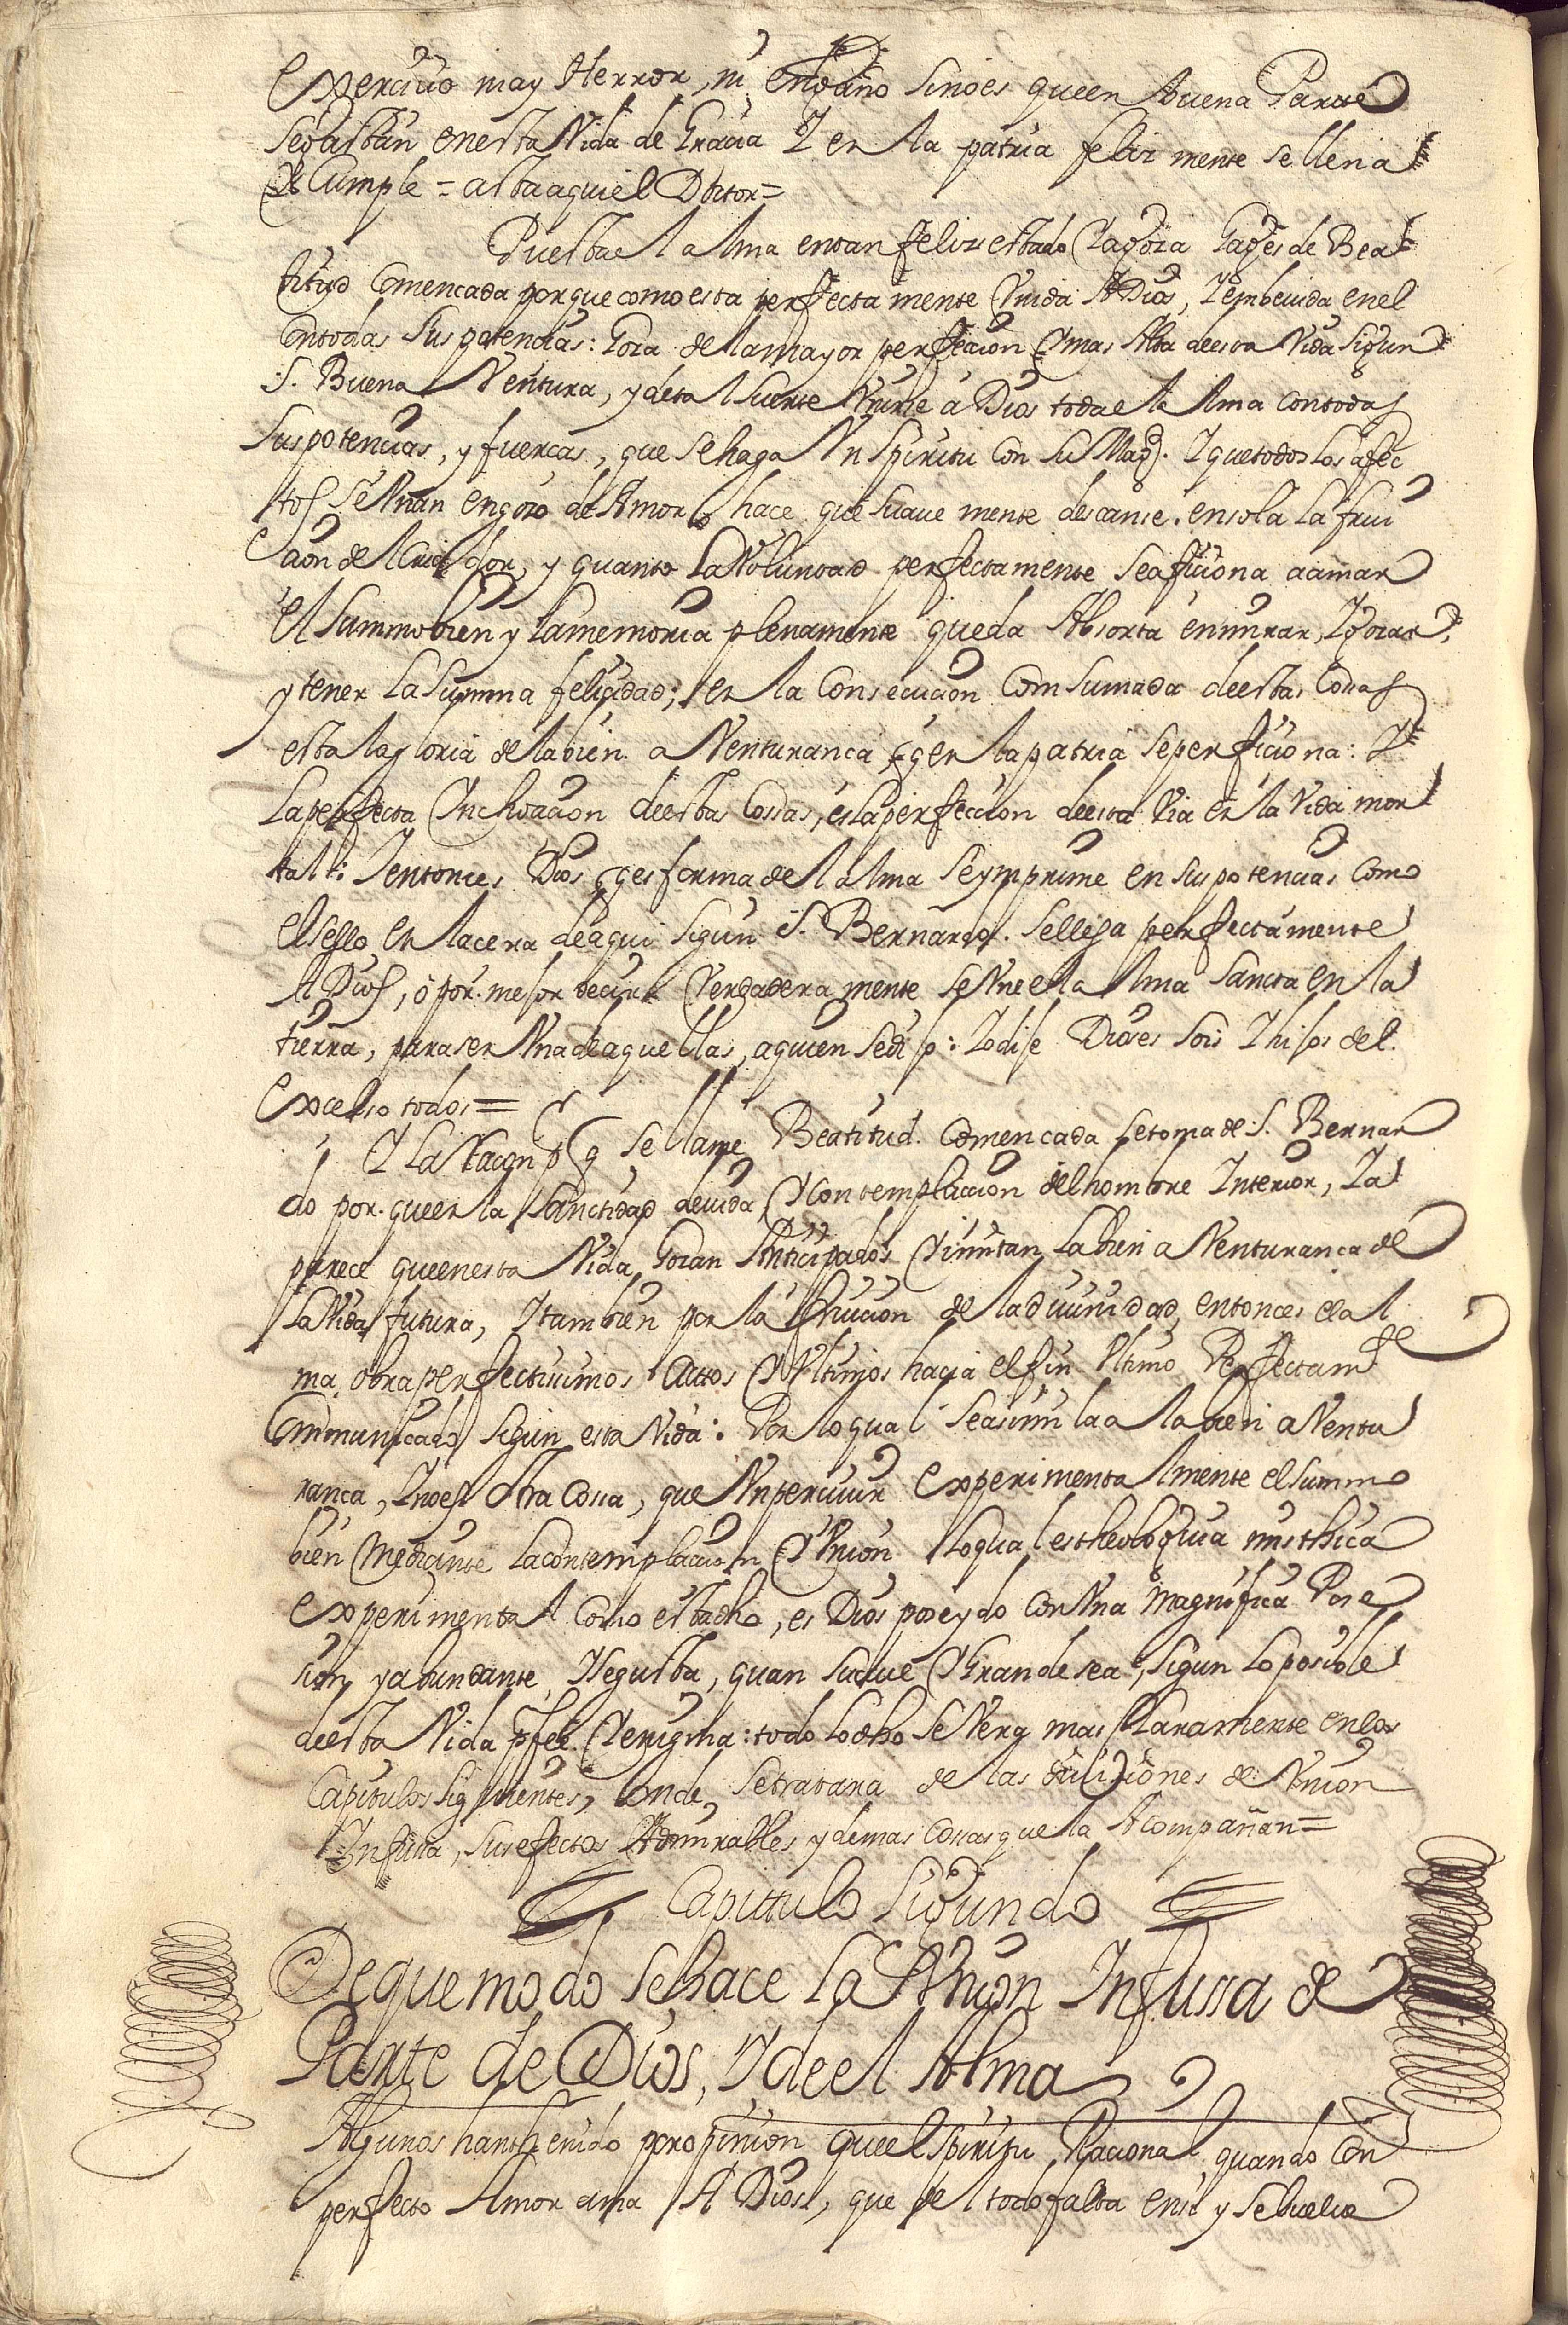 exercicio may Herror, ni engaño sinoes queen buena Parte
segastan enesta Vida de Gracia Y en la patria felizmente se llena
Y Cumple = asta aqui el Dotor =
Puesta el alma en tan feliz estado Ya goza Gages de Bea
titud Comencada porque como esta perfectamente Vnida A Dios, Y embeuida en el
Con todas sus potencias: Goza de la mayor perfecion Y mas Alta de esta Vida sigun
S. Buena Ventura, y de tal suerte Vnirse a Dios toda el Alma con todas
sus potencias, y fuercas, que se haga Vn Spiritu Con Su Magd. Y que todos los afec
tos se Vnan en gozo de Amor lo hace que suaue mente descanse en sola la frui
cion del Criador, y quanto la Voluntad perfectamente se aficiona a amar
el Summo bien y la memoria plenamente queda Absorta en mirar, Y gozar,
y tener la summa felicidad; en la Consecucion Comsumada de estas Cosas
esta la gloria de la bien a Venturanca q en la patria se perficiona: Y
la perfecta Inchoacion de estas Cossas, es la perfeccion de esta Via en la Vida mor
tal: Y entonces Dios q es forma del alma se ymprime en sus potencias Como
el sello en la cera de aqui sigun S. Bernardo. se llega perfectamente
A Dios, o por mejor decir Verdadera mente se Vne el Alma Sancta en la
tierra, para ser Vna de aquellas, a quien se dijo: Yo dije Dioses sois Y hijos del
excelso todos =
Y la Racon p q se llame Beatitud Comencada se toma de S. Bernar
do por que en la Sanctidad de uida Y Contemplacion del hombre Interior, Ya
parece que en esta Vida Gozan Anticipados Y imitan la bien a Venturanca de
la Vida futura, Y tambien por la fruicion de la diuinidad, entonces el al
ma obra perfectissimos Actos Y Vltimos hacia el fin Vltimo Perfectamte
Communicado sigun esta Vida: Por lo qual se asimila a la bien a Ventu
ranca, Y no es Otra Cossa, que Vn percivir experimentalmente el summo
bien Mediante la contemplacion Y Vnion lo qual es theologia misthica
experimental Como esta dho, es Dios poseydo Con Vna Magnifica Pose
sion y abundante, Y se gusta, quan suaue Y Grande sea, sigun lo posible
de esta Vida p fee Y enigma: todo lo dho se Vera mas Claramente en los
Capitulos siguientes, Onde se tratara de las diuiciones de Vnion
Infusa, sus efectos Admirables y demas cossas que la Acompañan =
Capitulo Sigundo
De que modo se hace la Vnion Infussa de
Parte de Dios, Y de el Alma
Algunos han thenido por opinion que el spiritu Racional, quando Con
perfecto Amor ama A Dios, que del todo falta en si y se buelue